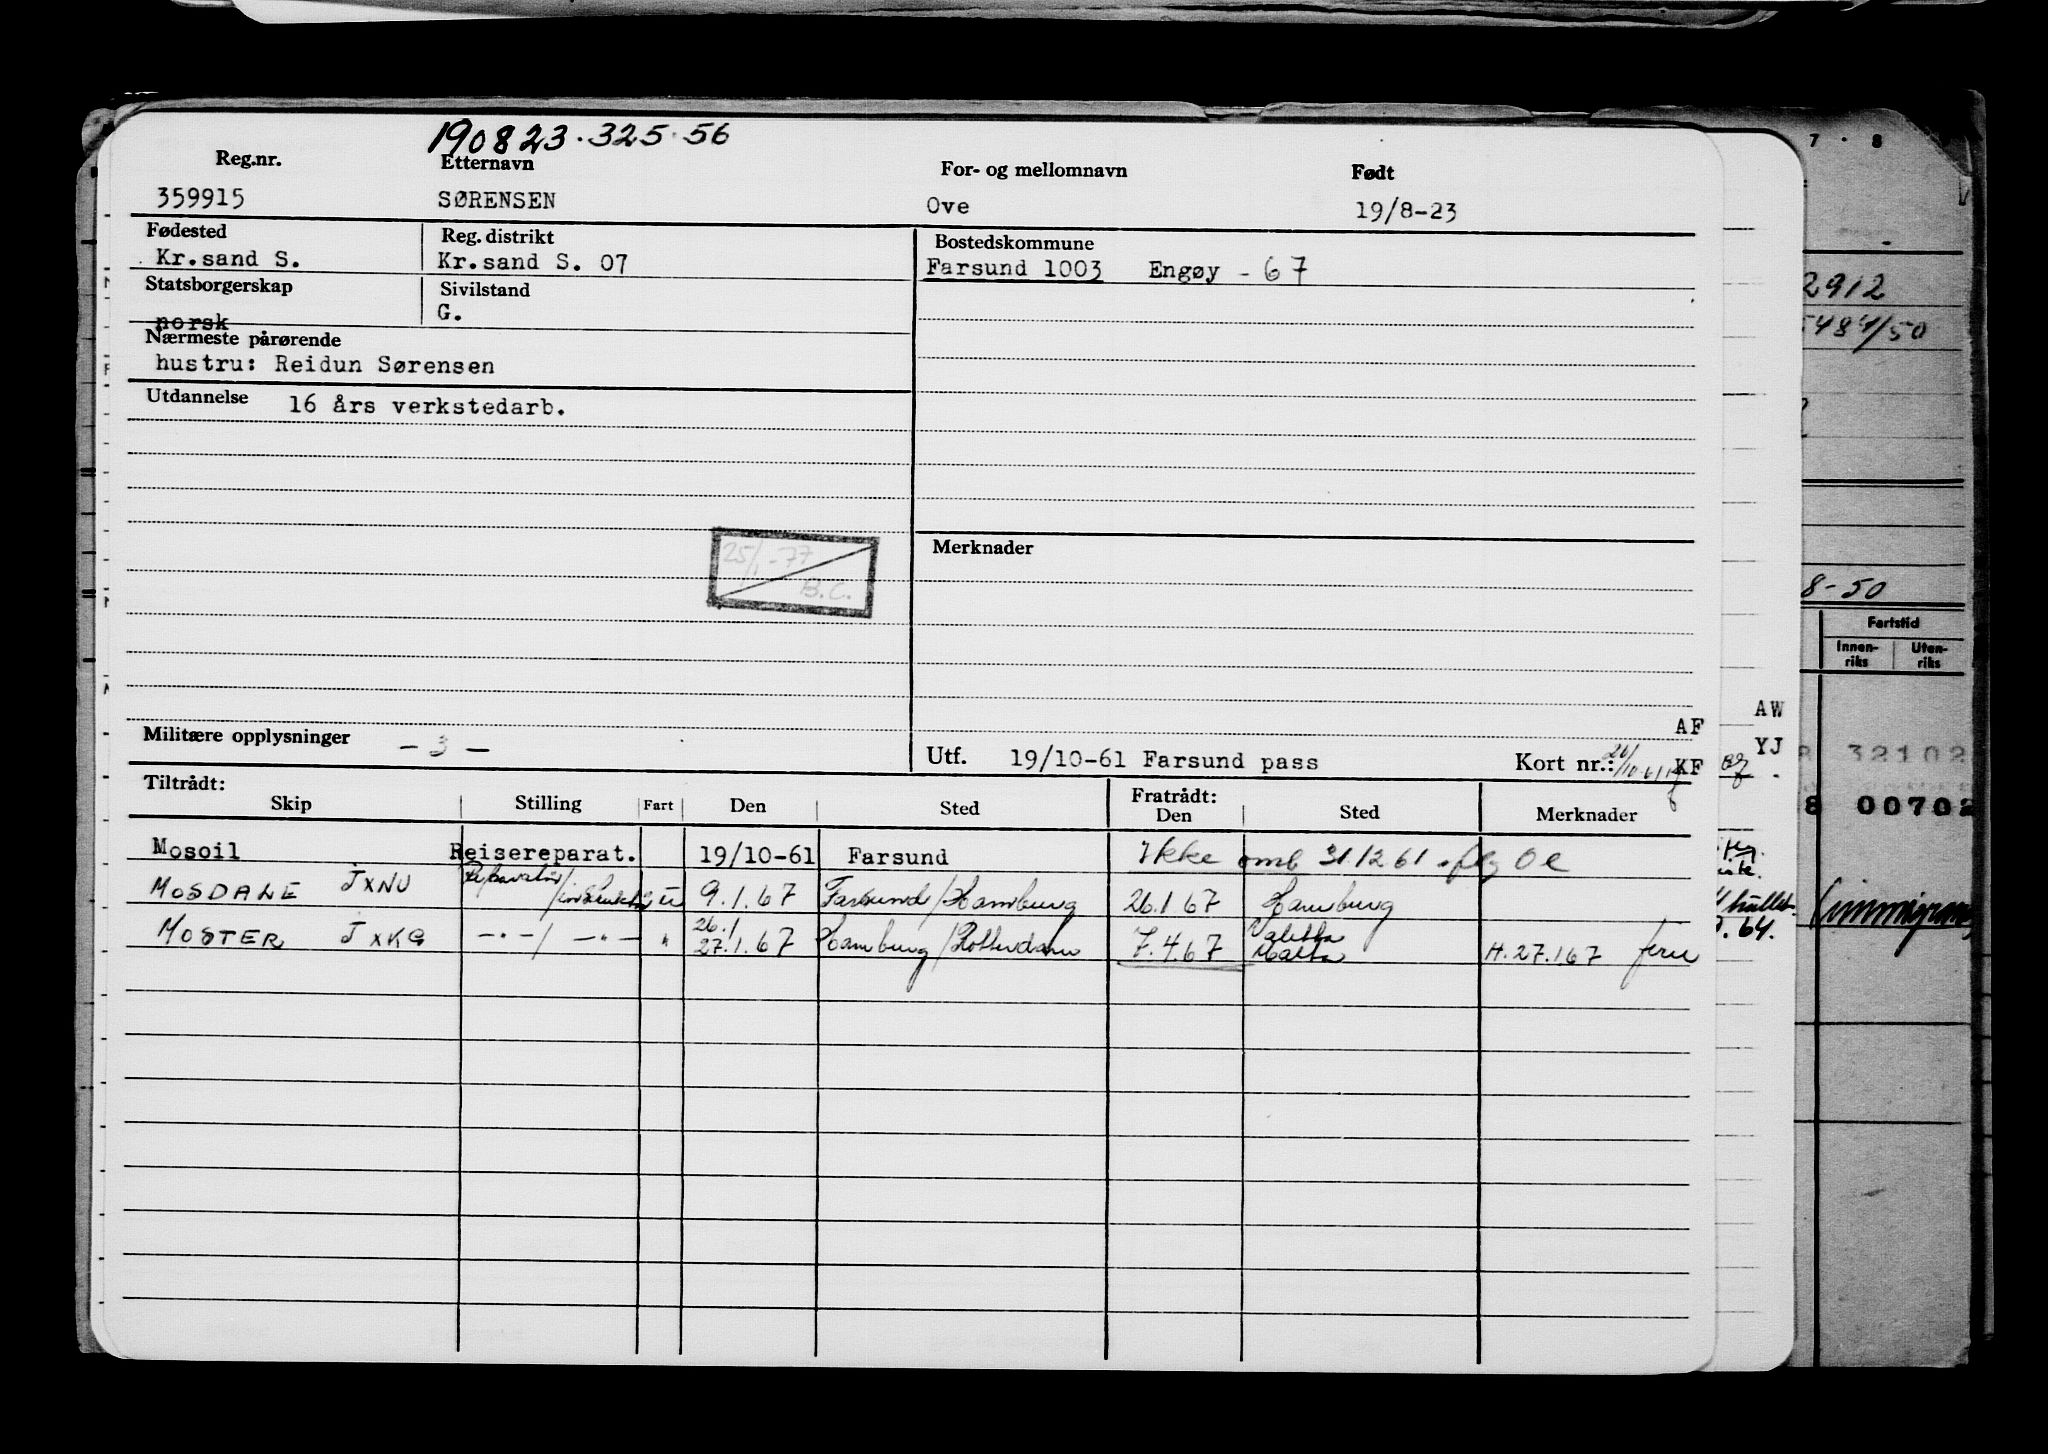 190823.325.56
Reg.nr. Etternavn For- og mellomnavn Født
359915 SØRENSEN Ove 19/8-23
Fødested Reg. distrikt Bostedskommune
Kr.sand S. Kr.sand S. 07 Farsund 1003 Engøy - 67
Statsborgerskap Sivilstand
norsk G.
Nærmeste pårørende
hustru: Reidun Sørensen
Utdannelse 16 års verkstedarb.
25/1-77
B.C.
Merknader
AF
Militære opplysninger - 3 -
Utf. 19/10-61 Farsund pass Kort nr.: KF
Tiltrådt: Fratrådt:
Skip Stilling Fart Den Sted Den Sted Merknader
Mosoil Reisereparat. 19/10-61 Farsund Ikke omb 31.12.61
MOSDALE JXNU U 9.1.67 Farsund/Hamburg 26.1 67 Hamburg
MOSTER JXKG -"-/ -"- " 26.1 27.1.67 Hamburg/Rotterdam 7.4.67 Valetta Malta H.27.167
7 . 8
2912
5484/50
8-50
Fartstid
Innen-riks Uten-riks
AW
YJ
32102
8 00702
64.